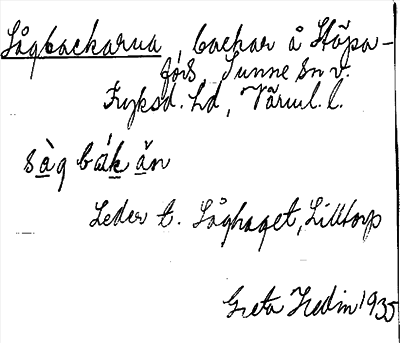 Lågbackarna, backar å Stöpa-
fors, Sunne sn v.
Fryksd. hd, Värml. l.
såg bák ăn
Leder t. Låghaget, Lilltorp
Greta Hedin 1935